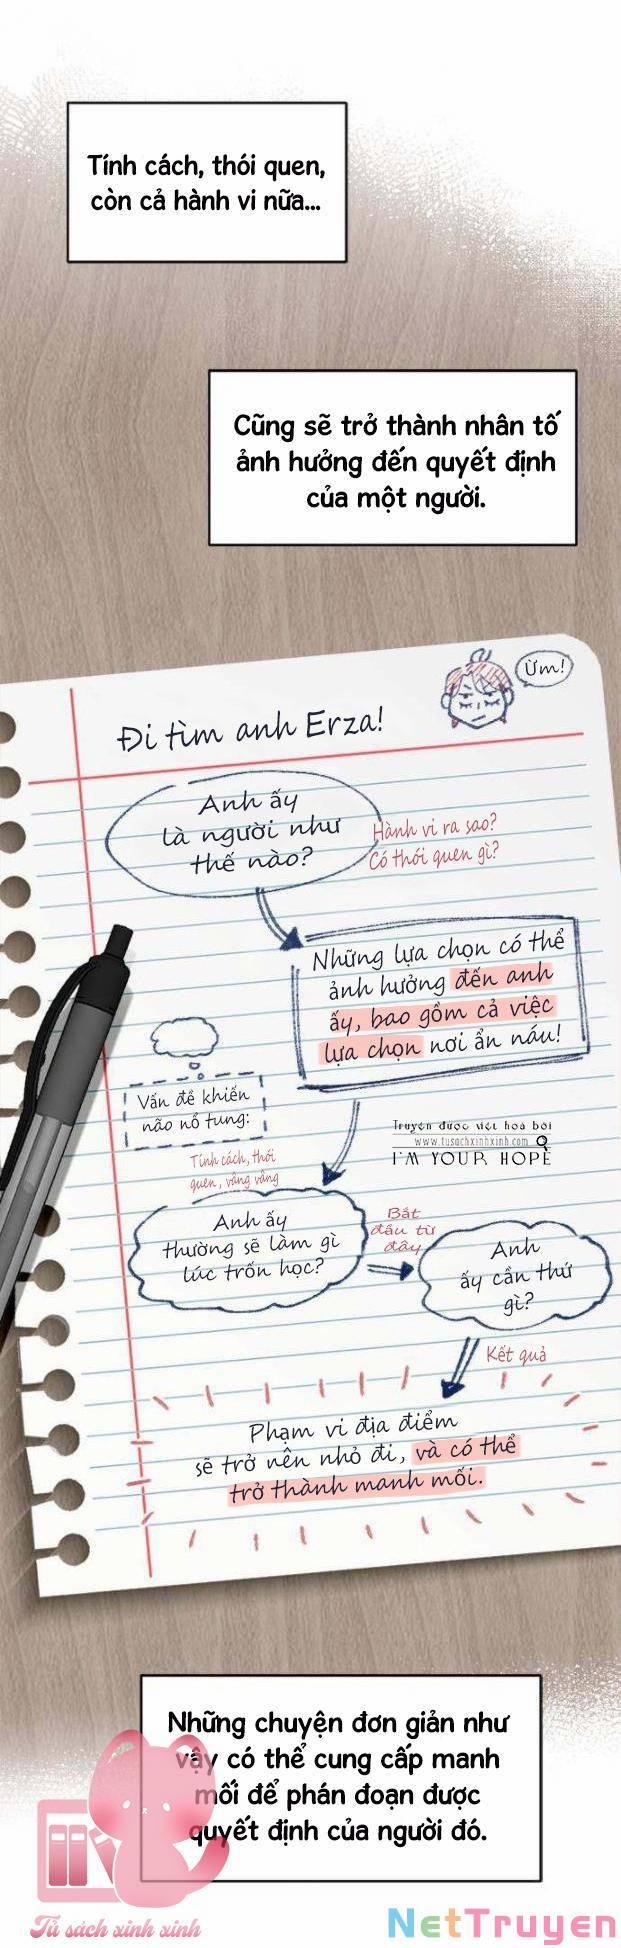 Tính cách, thói quen,
còn cả hành vi nữa...
Cũng sẽ trở thành nhân tố
ảnh hưởng đến quyết định
của một người.
Ừm!
Đi tìm anh Erza!
Anh ấy
là người như
thế nào?
Hành vi ra sao?
Có thói quen gì?
Những lựa chọn có thể
ảnh hưởng đến anh
ấy, bao gồm cả việc
lựa chọn nơi ẩn náu!
Vấn đề khiến
não nổ tung:
Truyện được việt hoá bởi
www.tusachxinhxinh.com
I'M YOUR HOPE
Tính cách, thói
quen, vâng vâng
Anh ấy
thường sẽ làm gì
lúc trốn học?
Bắt
đầu từ
đây
Anh
ấy cần thứ
gì?
Kết quả
Phạm vi địa điểm
sẽ trở nên nhỏ đi, và có thể
trở thành manh mối.
Những chuyện đơn giản như
vậy có thể cung cấp manh
mối để phán đoạn được
quyết định của người đó.
Tủ sách xinh xinh
NetTruyen